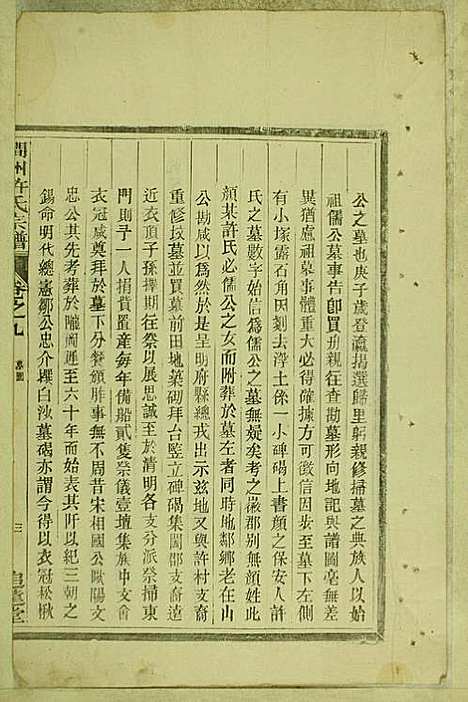 公之墓也庚子歲登瀛揭選歸里躬親修掃墓之典族人以始
祖儒公墓事告卽買舟親往查勘墓形向地記與譜圖毫無差
異猶慮祖墓事體重大必得確據方可徵信因步至墓下左側
有小塚露石角因剗去浮土係一小碑碣上書顔之保安人許
氏之墓數字始信爲儒公之墓無疑矣考之徽郡别無顔姓此
顔某許氏必儒公之女而附葬於墓左者同時地鄰鄉老在山
公勘咸以爲然於是呈明府縣總戎出示玆地又與許村支裔
重修坟墓並買墓前田地築砌拜台竪立碑碣集閩郡支裔遠
近衣頂子孫擇期往祭以展思誠至於清明各支分派祭掃東
門則予一人捐貲置產每年備船貳隻祭儀壹壇集族中文會
衣冠咸奠拜於墓下分餐頒胙事無不周昔宋相國公歐陽文
忠公其先考葬於隴岡遲至六十年而始表其阡以紀三朝之
錫命明代總憲鄒公忠介撰白沙墓碣亦謂今得以衣冠松楸
州許氏宗譜
卷之九
墓圖
三